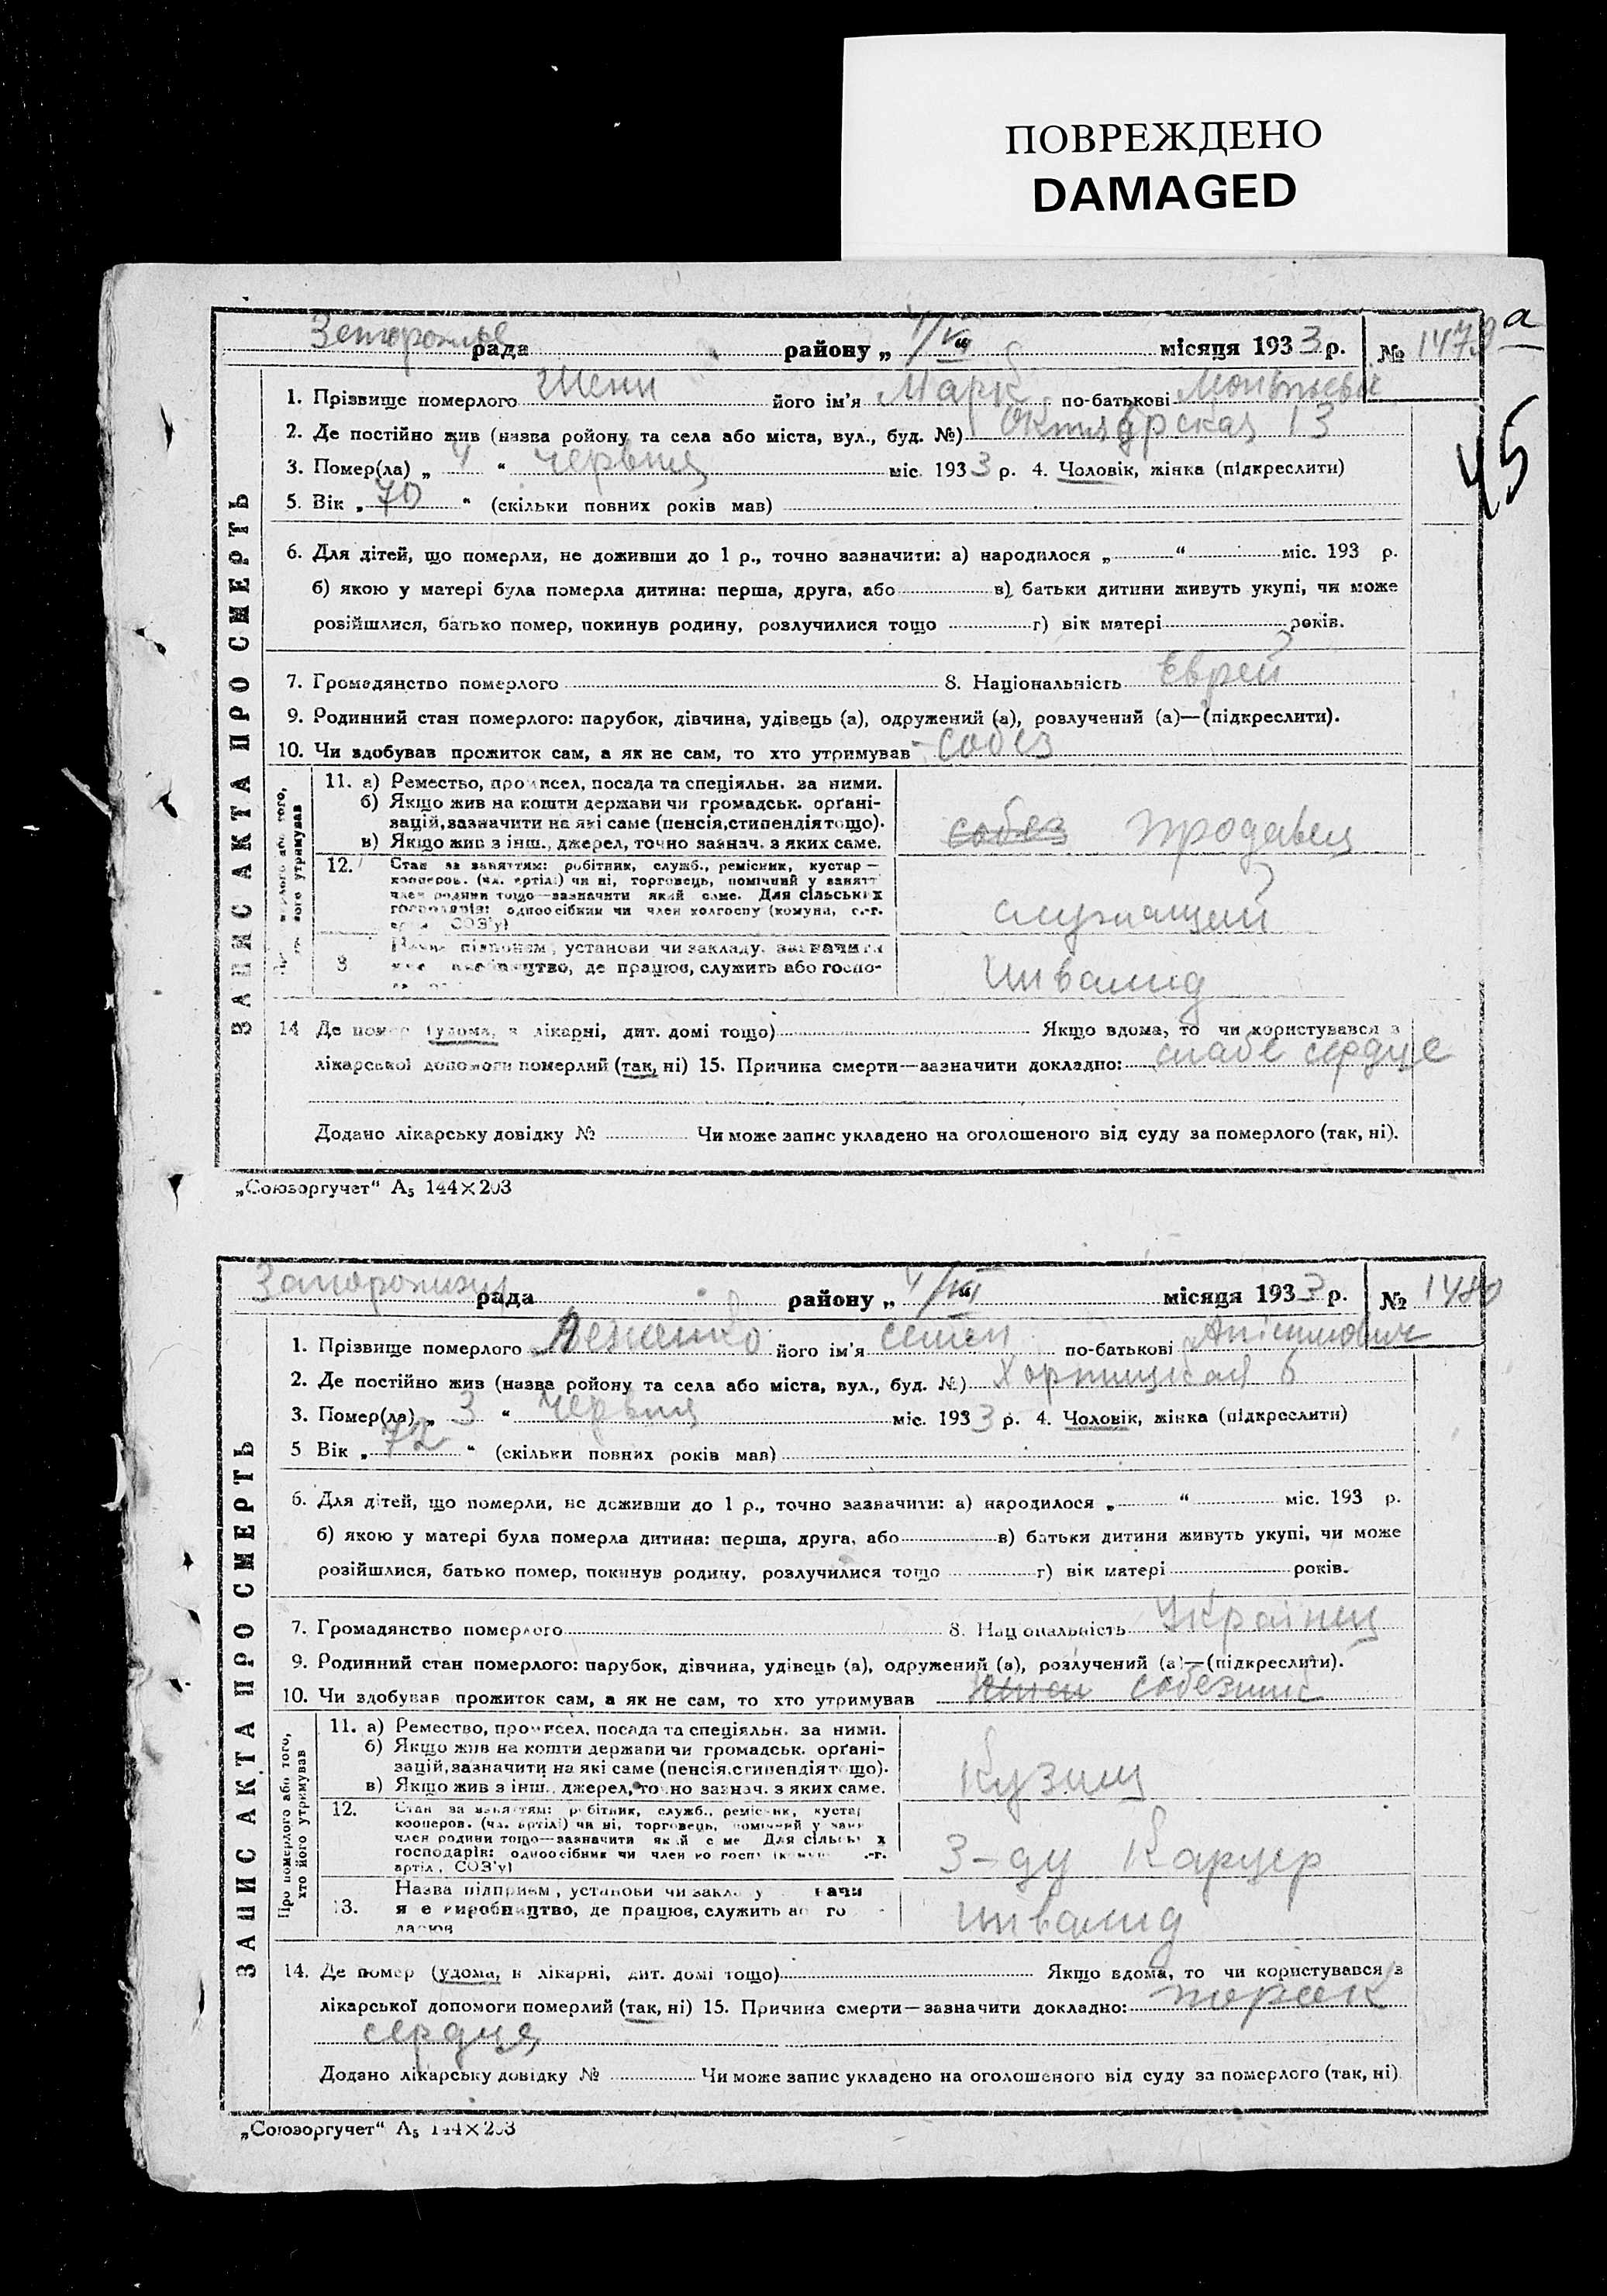 ПОВРЕЖДЕНО
DAMAGED
а
45
рада району „ 4/VI “ місяця 1933 р. № 1479
1. Прізвище померлого його ім'я Марк по-батькові
2. Де постійно жив (назва ройону та села або міста, вул., буд. №) Октябрская 13
3. Помер(ла) „ 4 “ червня міс. 1933 р. 4. Чоловік, жінка (підкреслити)
5. Вік „ 70 “ (скільки повних років мав)
6. Для дітей, що померли, не доживши до 1 р., точно зазначити: а) народилося „ “ міс. 193 р.
б) якою у матері була померла дитина: перша, друга, або в) батьки дитини живуть укупі, чи може
розійшлися, батько помер, покинув родину, розлучилися тощо г) вік матері років.
7. Громадянство померлого 8. Національність Еврей
9. Родинний стан померлого: парубок, дівчина, удівець (а), одружений (а), розлучений (а)—(підкреслити).
10. Чи здобував прожиток сам, а як не сам, то хто утримував собез
ЗАПИС АКТА ПРО СМЕРТЬ
11. а) Ремество, промисел, посада та спеціяльн. за ними.
б) Якщо жив на кошти держави чи громадськ. орґані-
зацій, зазначити на які саме (пенсія, стипендія тощо).
в) Якщо жив з інш., джерел, точно зазнач. з яких саме.
собез продавец
12. Стан за заняттям: робітник, служб., ремісник, кустар—
кооперов. (чл. артілі) чи ні, торговець, помічний у занятт
член родини тощо—зазначити який саме. Для сільських
господарів: одноосібник чи член колгоспу (комуни, с.-г.
СОЗ'у)
служащий
установи чи закладу, зазначити
де працює, служить або госпо-
инвалид
14 Де помер (удома, в лікарні, дит. домі тощо) Якщо вдома, то чи користувався з
лікарської допомоги померлий (так, ні) 15. Причина смерти—зазначити докладно: слабе сердце
Додано лікарську довідку № Чи може запис укладено на оголошеного від суду за померлого (так, ні).
„Союзоргучет“ А₅ 144×203
рада району „ 4/VI “ місяця 1933 р. № 1480
1. Прізвище померлого його ім'я Семен по-батькові
2. Де постійно жив (назва ройону та села або міста, вул., буд. №) Хортицкая 6
3. Помер(ла) „ 3 “ червня міс. 1933 р. 4. Чоловік, жінка (підкреслити)
5 Вік „ 72 “ (скільки повних років мав)
6. Для дітей, що померли, не доживши до 1 р., точно зазначити: а) народилося „ “ міс. 193 р.
б) якою у матері була померла дитина: перша, друга, або в) батьки дитини живуть укупі, чи може
розійшлися, батько помер, покинув родину, розлучилися тощо г) вік матері років.
7. Громадянство померлого 8. Національність Українец
9. Родинний стан померлого: парубок, дівчина, удівець (а), одружений (а), розлучений (а)—(підкреслити).
10. Чи здобував прожиток сам, а як не сам, то хто утримував
ЗАПИС АКТА ПРО СМЕРТЬ
Про померлого або того,
хто його утримував
11. а) Ремество, промисел, посада та спеціяльн. за ними.
б) Якщо жив на кошти держави чи громадськ. орґані-
зацій, зазначити на які саме (пенсія, стипендія тощо).
в) Якщо жив з інш., джерел, точно зазнач. з яких саме.
12. Стан за заняттям: робітник, служб., ремісник, кустар
кооперов. (чл. артілі) чи ні, торговець, помічний у
член родини тощо—зазначити який саме Для сільських
господарів: одноосібник чи член
артіл, СОЗ'у)
З-ду
13. Назва підприєм, установи чи закладу
виробництво, де працює, служить
инвалид
14. Де помер (удома, в лікарні, дит. домі тощо) Якщо вдома, то чи користувався з
лікарської допомоги померлий (так, ні) 15. Причина смерти—зазначити докладно: порок
сердця
Додано лікарську довідку № Чи може запис укладено на оголошеного від суду за померлого (так, ні)
„Союзоргучет“ А₅ 144×203